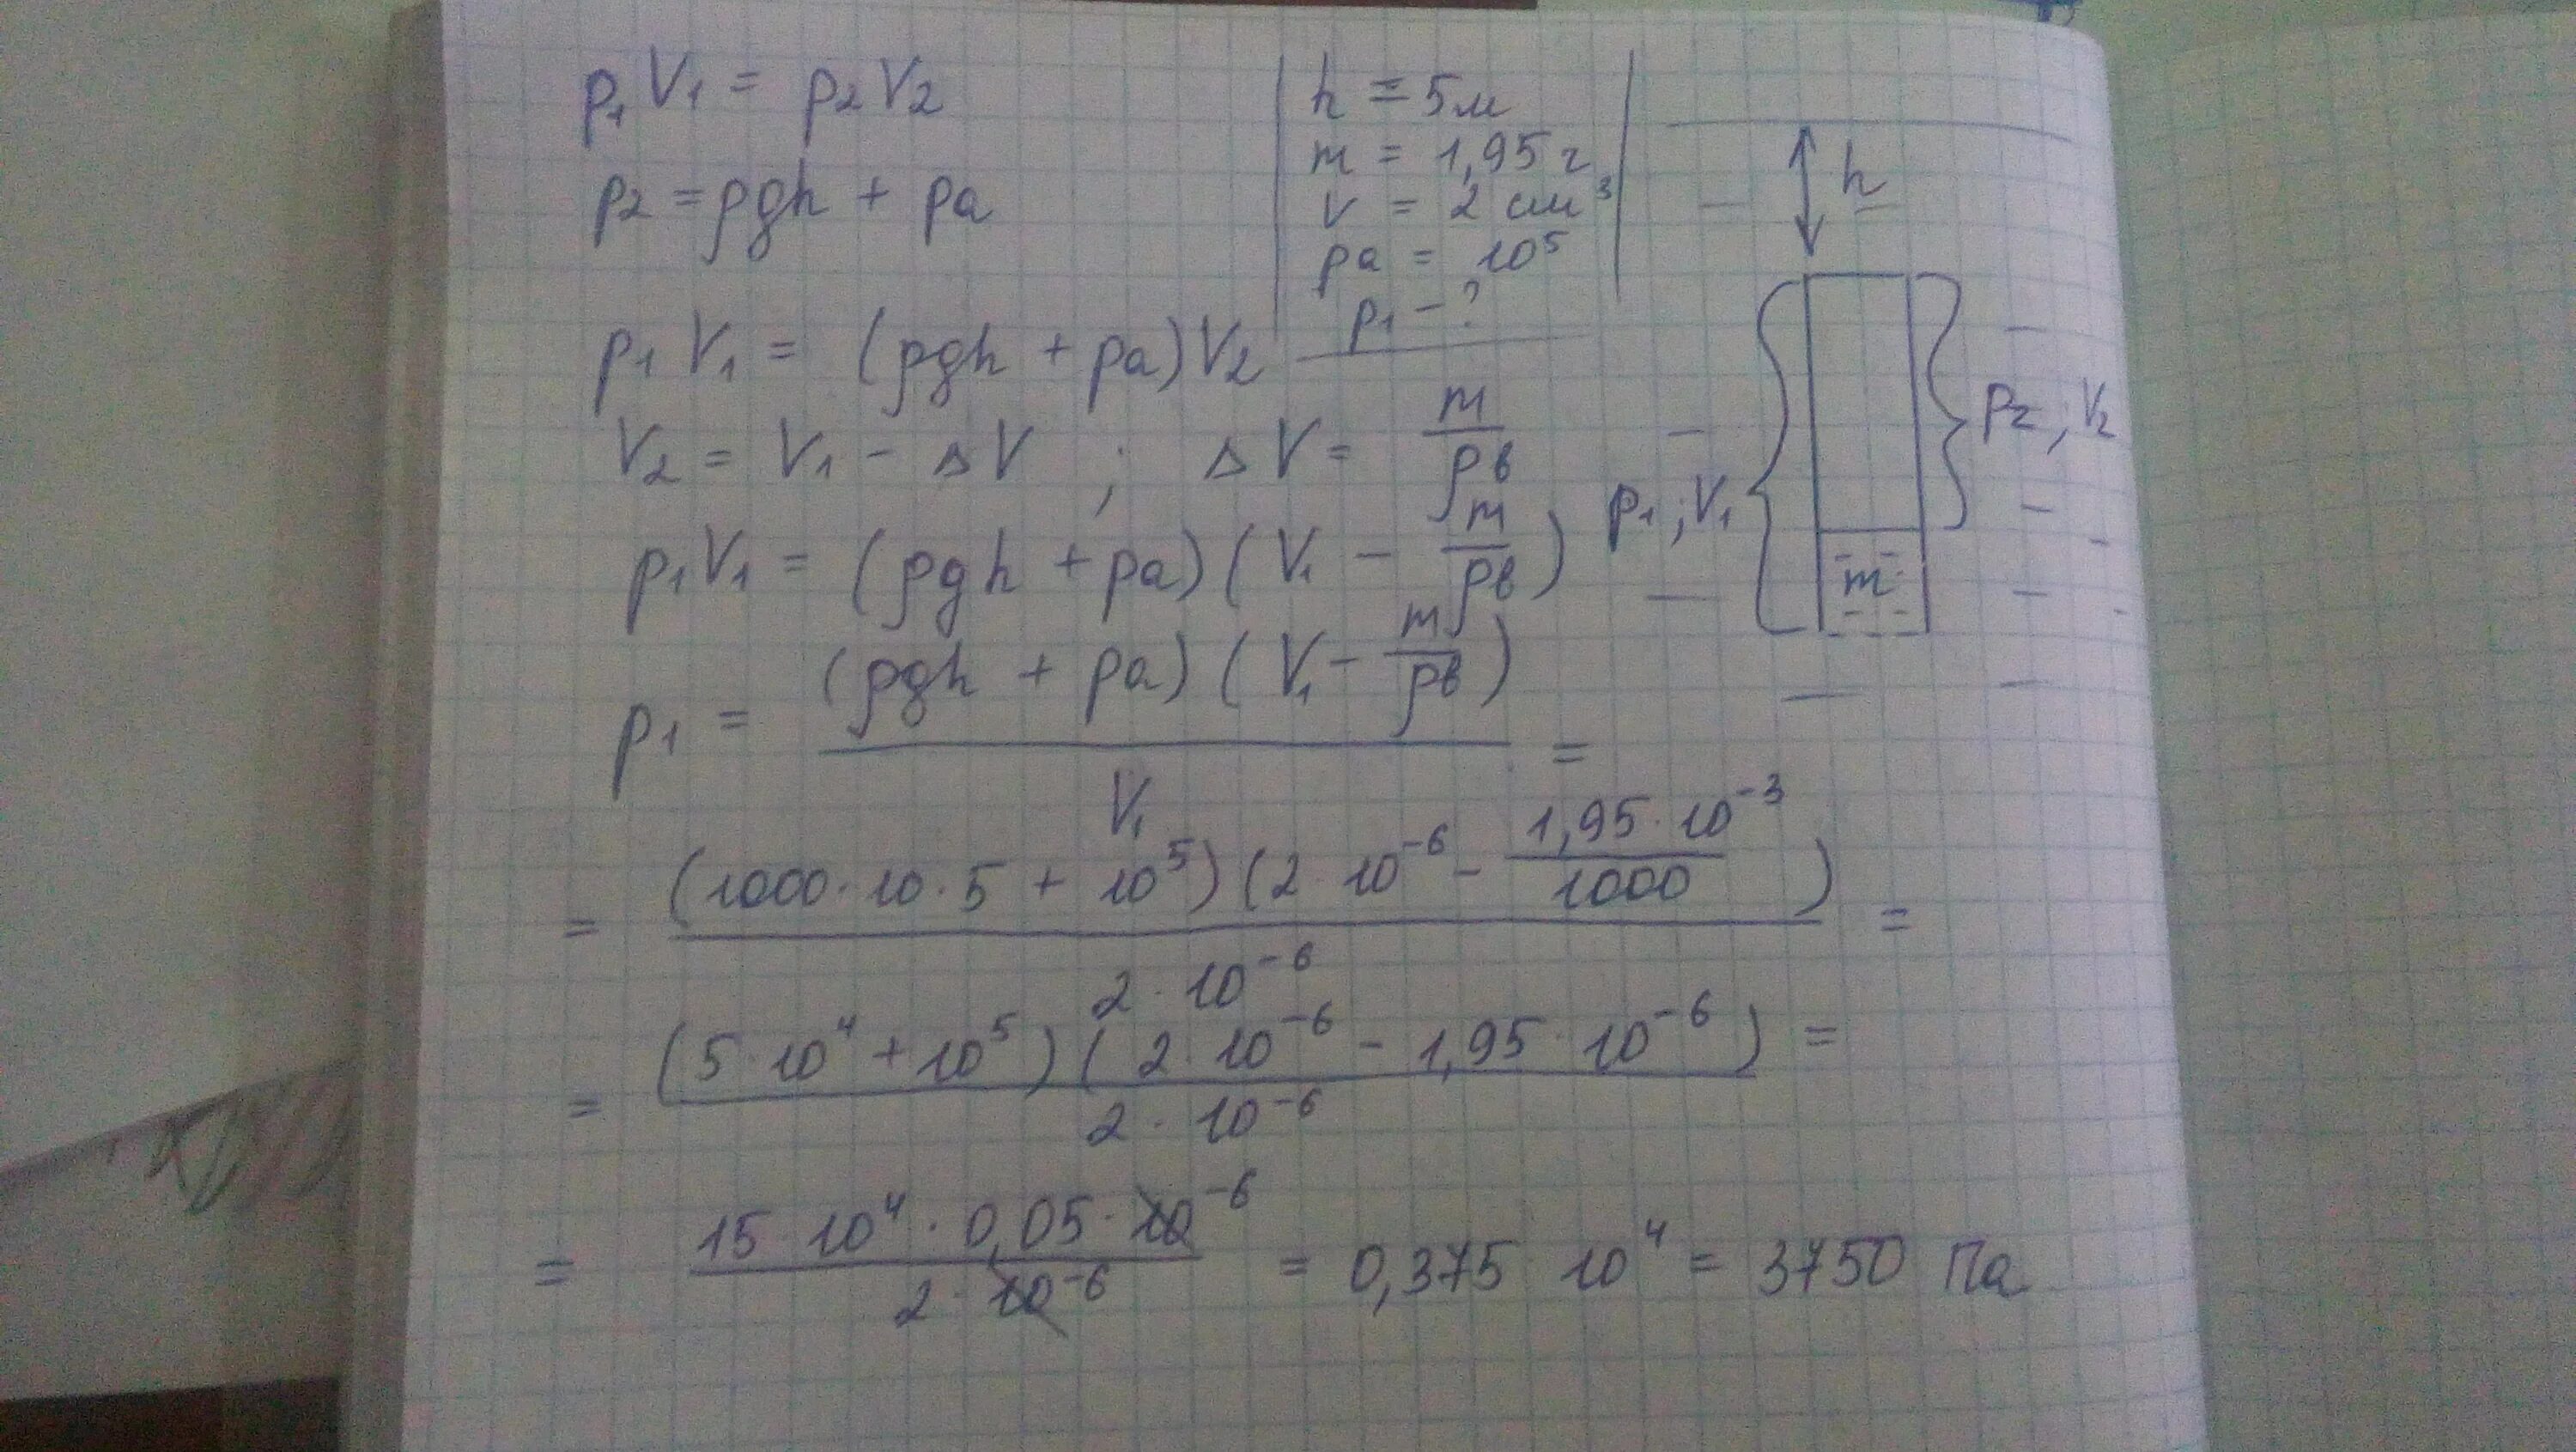 p₁V₁ = p₂V₂
p₂ = ρgh + pa
h = 5м
m = 1,95 г
V = 2 см³
pa = 10⁵
p₁ - ?
h
p₁V₁ = (ρgh + pa)V₂
V₂ = V₁ - ΔV ; ΔV = m/ρв
p₁V₁ = (ρgh + pa)(V₁ - m/ρв)
p₁; V₁
p₂; V₂
m
p₁ = (ρgh + pa)(V₁ - m/ρв) / V₁ =
= (1000·10·5 + 10⁵)(2·10⁻⁶ - 1,95·10⁻³/1000) / 2·10⁻⁶ =
= (5·10⁴ + 10⁵)(2·10⁻⁶ - 1,95·10⁻⁶) / 2·10⁻⁶ =
= 15·10⁴·0,05·10⁻⁶ / 2·10⁻⁶ = 0,375·10⁴ = 3750 Па